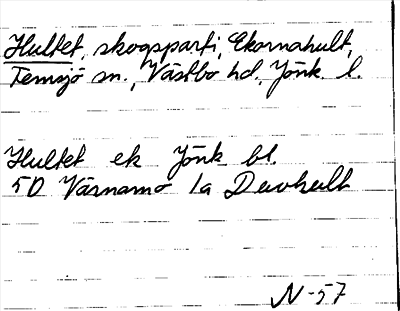 Hultet, skogsparti, Ekornahult,
Femsjö sn., Västbo hd, Jönk. l.
Hultet ek Jönk bl.
5D Värnamo 1a Duvhult
N-57